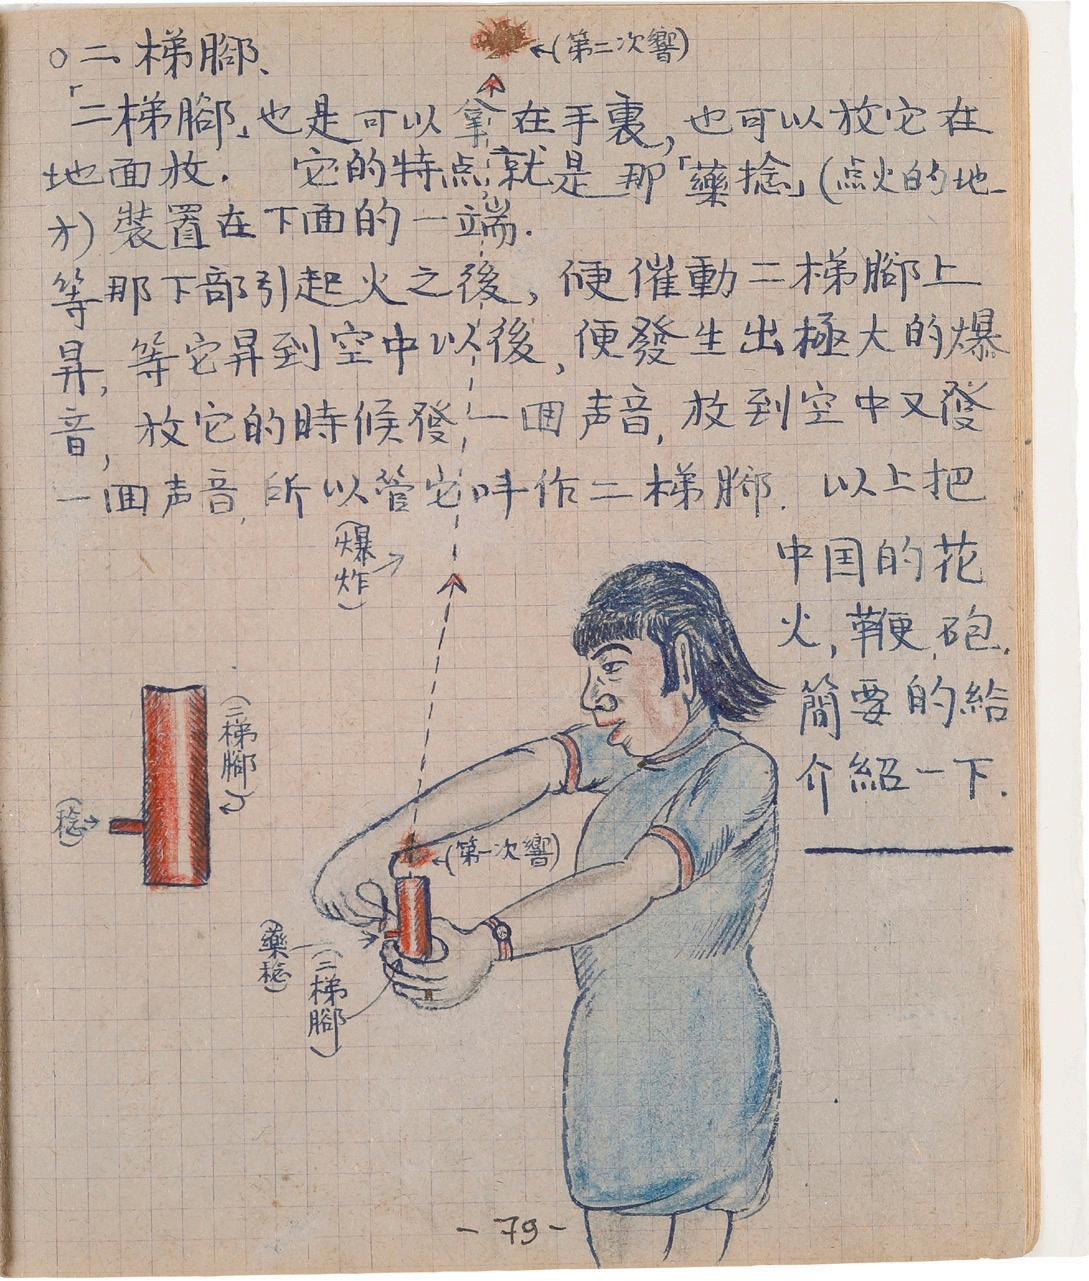 ○二梯腳、
(第二次響)
「二梯腳」也是可以拿在手裏，也可以放它在
地面放. 它的特点就是那「藥捻」(点火的地
方)裝置在下面的一端.
等那下部引起火之後，便催動二梯腳上
昇，等它昇到空中以後，便發生出極大的爆
音，放它的時候發一囬声音，放到空中又發
一囬声音，所以管它叫作二梯腳. 以上把
中国的花
火，鞭砲，
簡要的給
介紹一下.
(爆炸)
(二梯腳)
(捻)
(第一次響)
(藥捻)
(二梯腳)
-79-